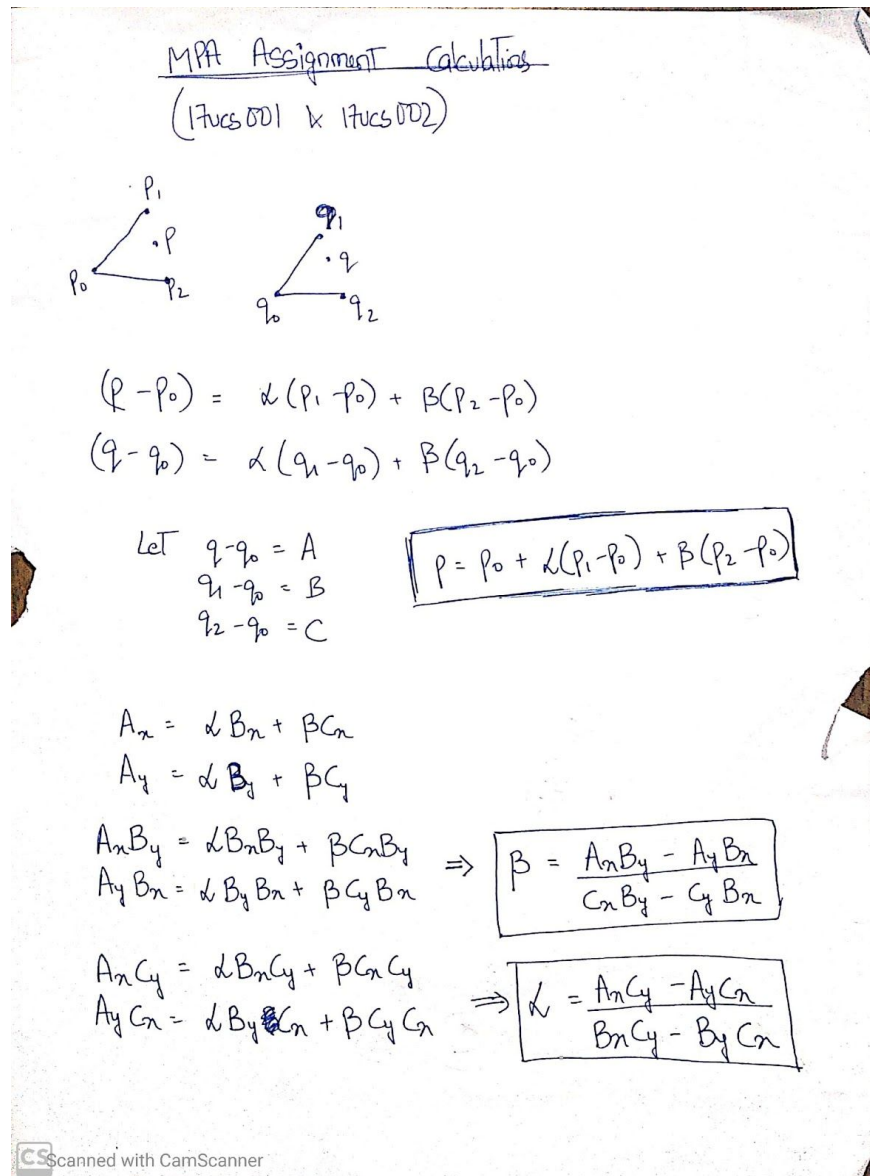 MPA Assignment Calculations
(17ucs001 & 17ucs002)
P₁
.P
P₀
P₂
q₁
.q
q₀
q₂
(P - P₀) = α(P₁ - P₀) + β(P₂ - P₀)
(q - q₀) = α(q₁ - q₀) + β(q₂ - q₀)
Let q - q₀ = A
q₁ - q₀ = B
q₂ - q₀ = C
P = P₀ + α(P₁ - P₀) + β(P₂ - P₀)
Aₓ = αBₓ + βCₓ
Ay = αBy + βCy
AₓBy = αBₓBy + βCₓBy
AyBₓ = αByBₓ + βCyBₓ
⇒ β = (AₓBy - AyBₓ) / (CₓBy - CyBₓ)
AₓCy = αBₓCy + βCₓCy
AyCₓ = αByCₓ + βCyCₓ
⇒ α = (AₓCy - AyCₓ) / (BₓCy - ByCₓ)
CS Scanned with CamScanner